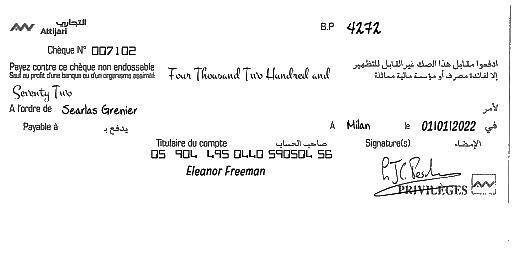 التجاري
Attijari
B.P 4272
Chèque N° 007102
Payez contre ce chèque non endossable
Sauf au profit d'une banque ou d'un organisme assimilé
Four Thousand Two Hundred and
ادفعوا مقابل هذا الصك غير القابل للتظهير
إلا لفائدة مصرف أو مؤسسة مالية مماثلة
Seventy Two
A l'ordre de Searlas Grenier لأمر
Payable à يدفع بـ A Milan le 01/01/2022 في
Titulaire du compte صاحب الحساب Signature(s) الإمضاء
05 904 495 0440 590504 56
Eleanor Freeman
PRIVILÈGES